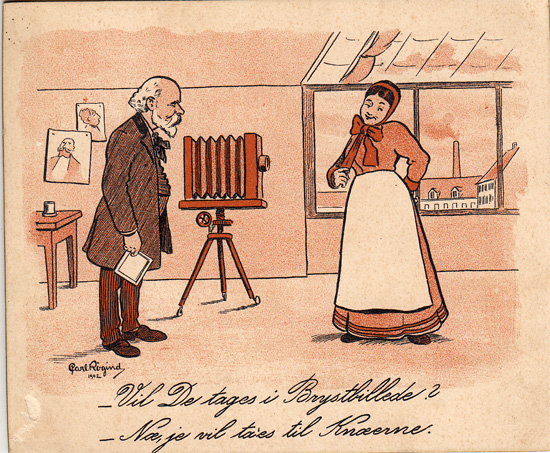 Carl Røgind
1902
– Vil De tages i Brystbillede?
– Næ, je vil ta'es til Knæerne.